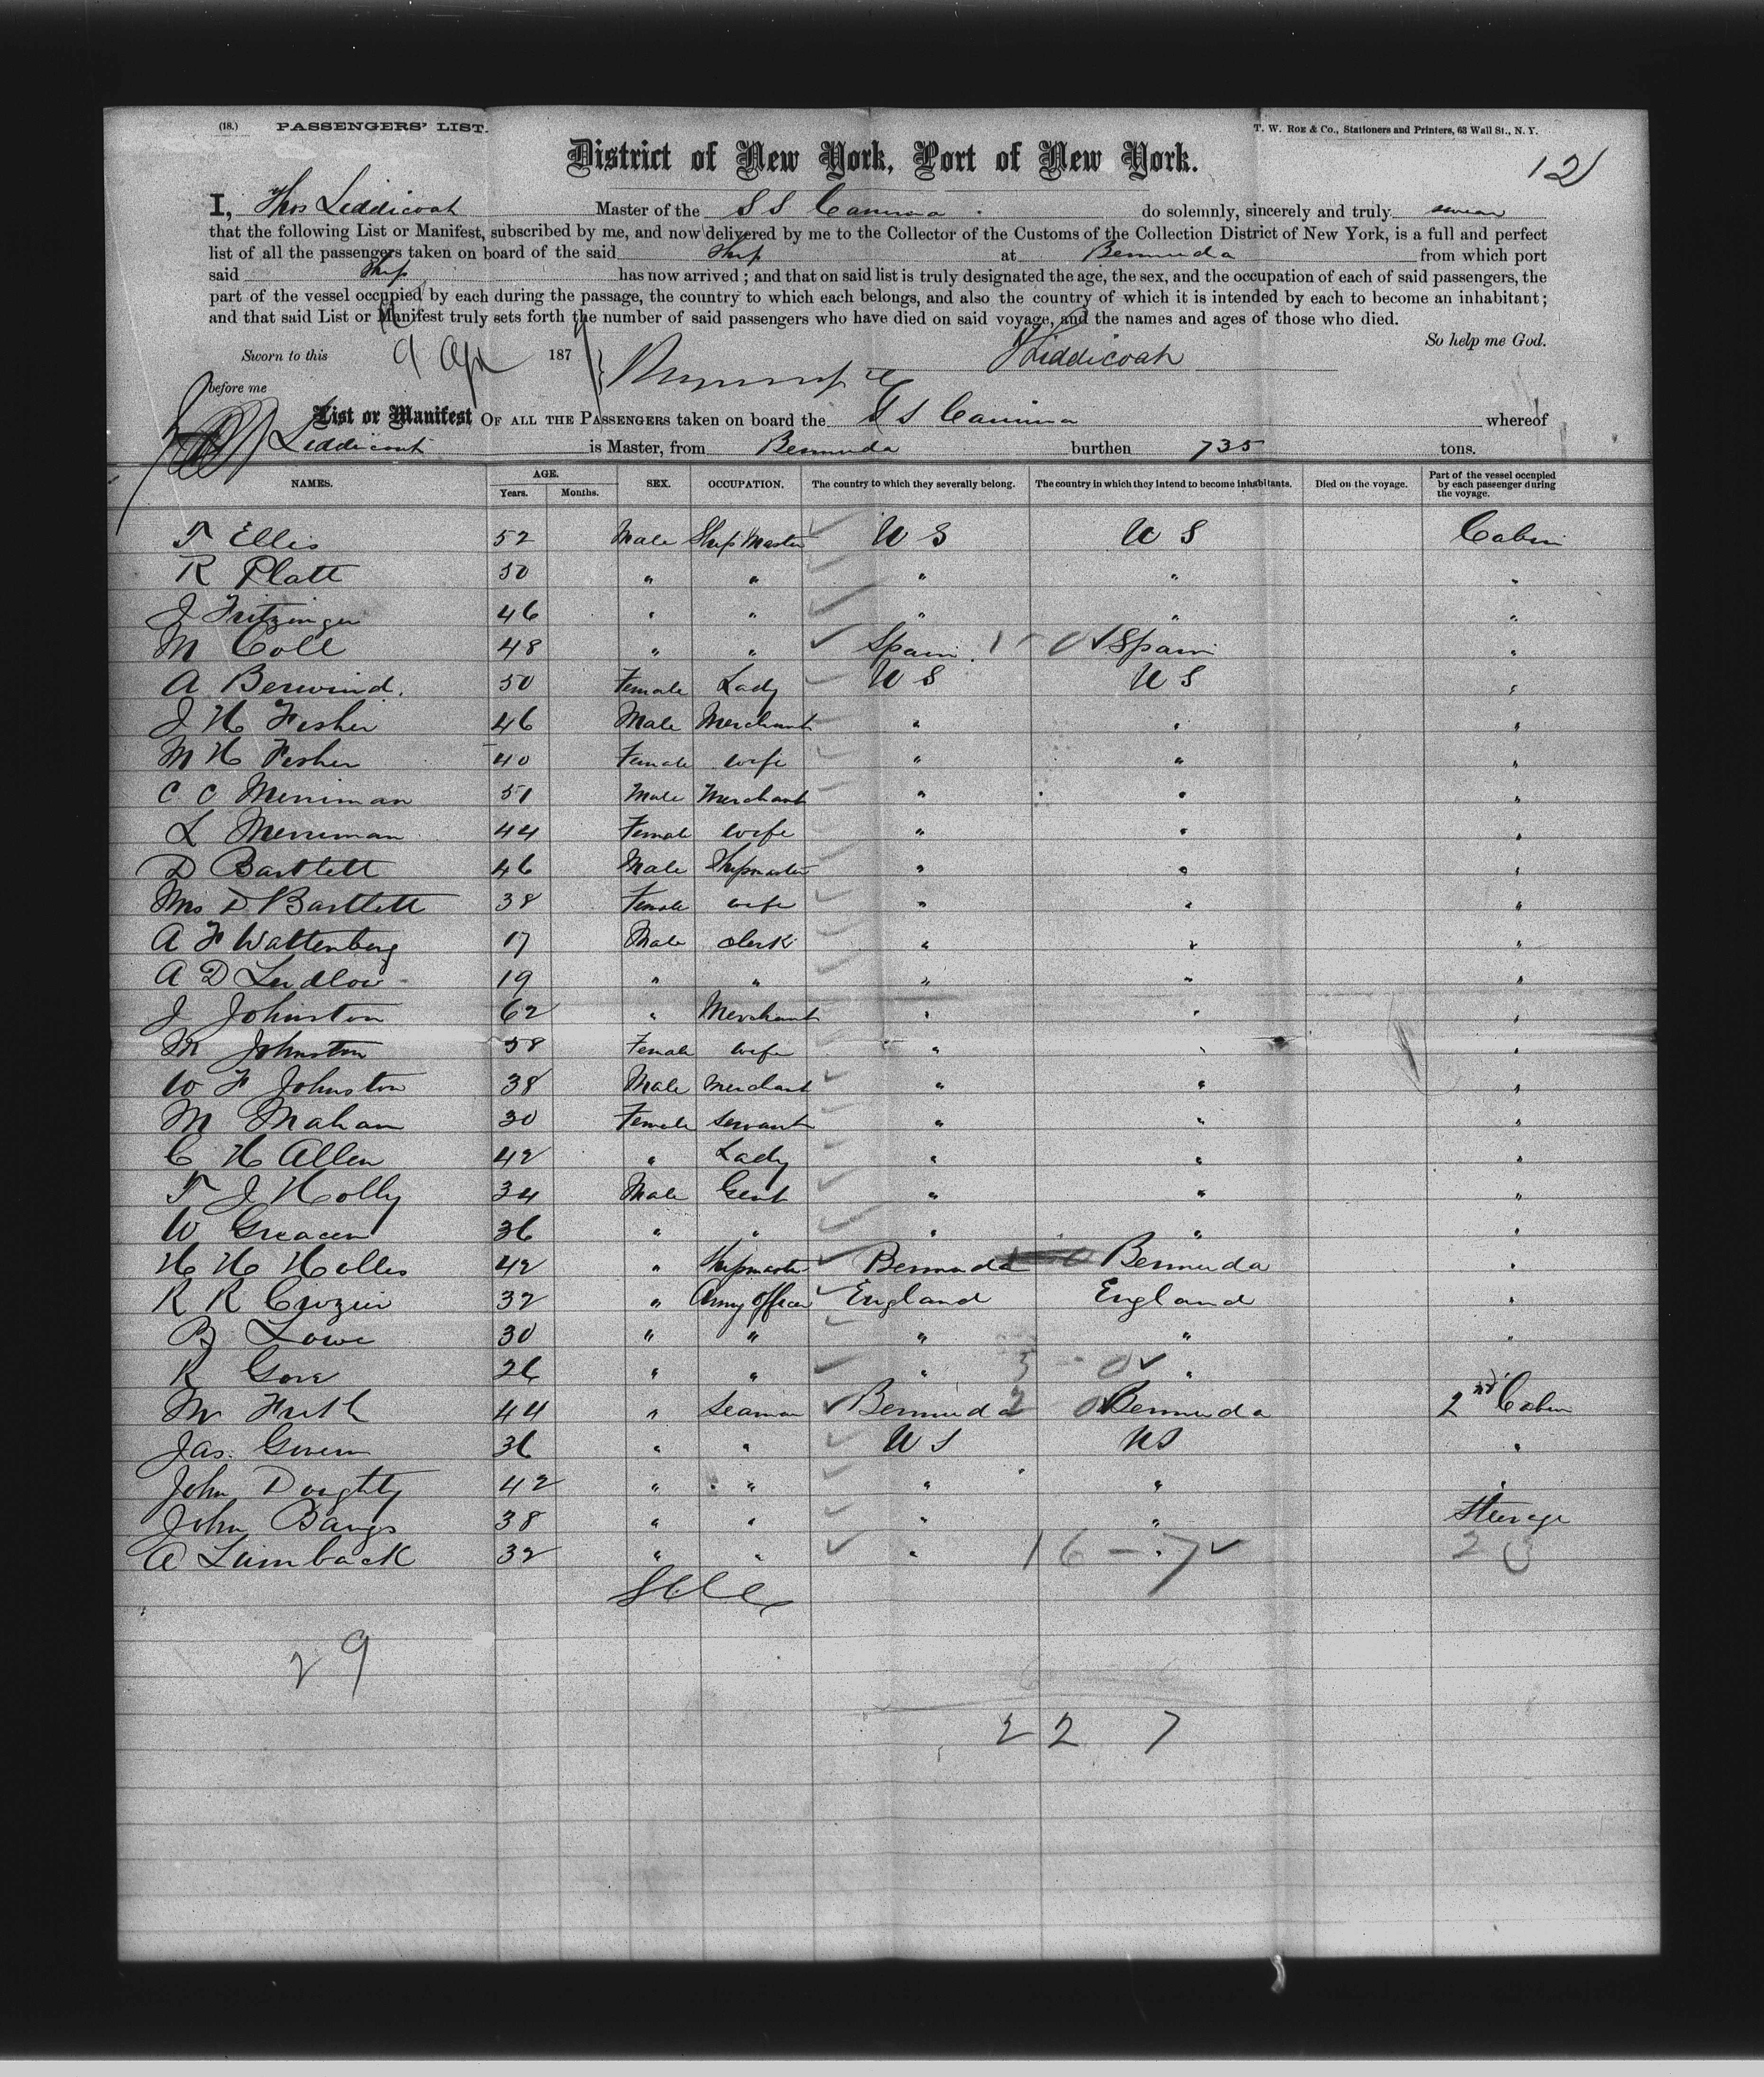 (18.) PASSENGERS' LIST. T. W. ROE & Co., Stationers and Printers, 63 Wall St., N. Y.
District of New York, Port of New York.
121
I, Thos Liddicoat Master of the S S Canima do solemnly, sincerely and truly swear
that the following List or Manifest, subscribed by me, and now delivered by me to the Collector of the Customs of the Collection District of New York, is a full and perfect
list of all the passengers taken on board of the said Ship at Bermuda from which port
said Ship has now arrived; and that on said list is truly designated the age, the sex, and the occupation of each of said passengers, the
part of the vessel occupied by each during the passage, the country to which each belongs, and also the country of which it is intended by each to become an inhabitant;
and that said List or Manifest truly sets forth the number of said passengers who have died on said voyage, and the names and ages of those who died.
So help me God.
Sworn to this 9 Apr 187 Liddicoat
before me
List or Manifest OF ALL THE PASSENGERS taken on board the S S Canima whereof
Liddicoat is Master, from Bermuda burthen 735 tons.
NAMES. AGE. Years. Months. SEX. OCCUPATION. The country to which they severally belong. The country in which they intend to become inhabitants. Died on the voyage. Part of the vessel occupied by each passenger during the voyage.
T Ellis 52 Male Ship Master U S U S Cabin
R Platt 50 " " " " "
J Fritzinger 46 " " " " "
M Coll 48 " " Spain 1 - 0 Spain "
A Berwind. 50 Female Lady U S U S "
J H Fisher 46 Male Merchant " " "
M H Fisher 40 Female wife " " "
C C Merriman 51 Male Merchant " " "
L Merriman 44 Female wife " " "
D Bartlett 46 Male Shipmaster " " "
Mrs D Bartlett 38 Female wife " " "
A F Wattenberg 17 Male clerk " " "
A D Ludlow 19 " " " " "
J Johnston 62 " Merchant " " "
M Johnston 58 Female wife " " "
W F Johnston 38 Male merchant " " "
M Mahan 30 Female servant " " "
C H Allen 42 " Lady " " "
T J Holly 34 Male Gent " " "
W Greacen 36 " " " " "
H H Hollis 42 " Shipmaster Bermuda Bermuda "
R R Crozier 32 " Army Officer England England "
B Lowe 30 " " " " "
R Gore 26 " " " 3 - 0 " "
M Frith 44 " Seaman Bermuda 2 0 Bermuda 2nd Cabin
Jas. Givern 36 " " U S U S "
John Doughty 42 " " " " "
John Bangs 38 " " " " Steerage
A Limback 32 " " " 16 - 7 "
29
22 7